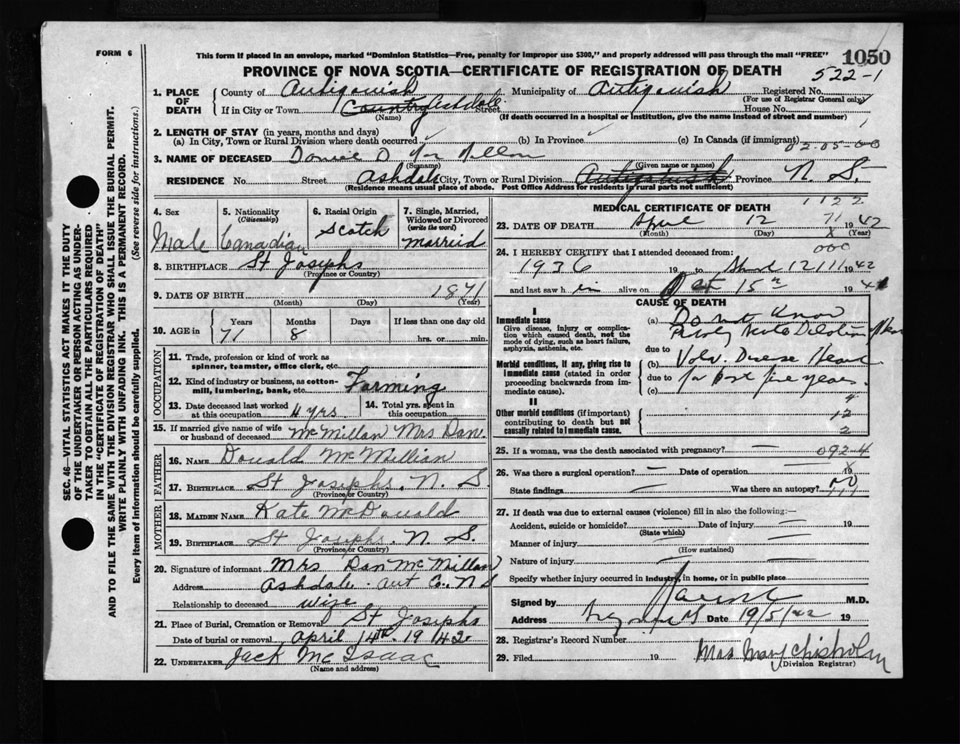 FORM 6
This form if placed in an envelope, marked "Dominion Statistics—Free, penalty for improper use $300," and properly addressed will pass through the mail "FREE"
1050
PROVINCE OF NOVA SCOTIA—CERTIFICATE OF REGISTRATION OF DEATH
522-1
1. PLACE OF DEATH
County of Antigonish Municipality of Antigonish Registered No.
(For use of Registrar General only)
If in City or Town Country Ashdale Street House No.
(Name) (If death occurred in a hospital or institution, give the name instead of street and number)
2. LENGTH OF STAY (in years, months and days)
(a) In City, Town or Rural Division where death occurred (b) In Province (c) In Canada (if immigrant)
02-05-00
3. NAME OF DECEASED
(Surname) (Given name or names)
RESIDENCE No. Street Ashdale City, Town or Rural Division Antigonish Province N. S.
(Residence means usual place of abode. Post Office Address for residents in rural parts not sufficient)
4. Sex
Male
5. Nationality
(Citizenship)
Canadian
6. Racial Origin
Scotch
7. Single, Married, Widowed or Divorced
(write the word)
married
8. BIRTHPLACE St Josephs
(Province or Country)
9. DATE OF BIRTH 1871
(Month) (Day) (Year)
10. AGE in Years Months Days If less than one day old
71 8 hrs. or min.
OCCUPATION
11. Trade, profession or kind of work as spinner, teamster, office clerk, etc.
12. Kind of industry or business, as cotton-mill, lumbering, bank, etc. Farming
13. Date deceased last worked at this occupation 4 yrs
14. Total yrs. spent in this occupation
15. If married give name of wife or husband of deceased McMillan Mrs Dan.
FATHER
16. NAME Donald McMillian
17. BIRTHPLACE St Josephs. N. S
(Province or Country)
MOTHER
18. MAIDEN NAME Kate McDonald
19. BIRTHPLACE St Josephs. N. S.
(Province or Country)
20. Signature of informant Mrs Dan McMillan
Address Ashdale Ant Co. N S
Relationship to deceased wife
21. Place of Burial, Cremation or Removal St Josephs
Date of burial or removal April 14th 1942
22. UNDERTAKER Jack McIsaac
(Name and address)
MEDICAL CERTIFICATE OF DEATH
1122
23. DATE OF DEATH April 12 1942
(Month) (Day) (Year)
24. I HEREBY CERTIFY that I attended deceased from:
1936 19 to 12 1942
and last saw h im alive on 15th 1941
CAUSE OF DEATH
I
Immediate cause
Give disease, injury or complication which caused death, not the mode of dying, such as heart failure, asphyxia, asthenia, etc.
(a) Do not Know
due to
Morbid conditions, if any, giving rise to immediate cause (stated in order proceeding backwards from immediate cause).
(b)
due to for past five years.
(c)
II
Other morbid conditions (if important) contributing to death but not causally related to immediate cause.
12
2
25. If a woman, was the death associated with pregnancy? 092-4
26. Was there a surgical operation? — Date of operation — 19
State findings — Was there an autopsy? no
27. If death was due to external causes (violence) fill in also the following:—
Accident, suicide or homicide? — Date of injury — 19
(State which)
Manner of injury —
(How sustained)
Nature of injury —
Specify whether injury occurred in industry, in home, or in public place
Signed by M.D.
Address Date 19/5/42 19
28. Registrar's Record Number
29. Filed 19 Mrs Mary Chisholm
(Division Registrar)
SEC. 46—VITAL STATISTICS ACT MAKES IT THE DUTY
OF THE UNDERTAKER OR PERSON ACTING AS UNDERTAKER TO OBTAIN ALL THE PARTICULARS REQUIRED
IN THE "CERTIFICATE OF REGISTRATION OF DEATH"
AND TO FILE THE SAME WITH THE DIVISION REGISTRAR WHO SHALL ISSUE THE BURIAL PERMIT.
WRITE PLAINLY WITH UNFADING INK. THIS IS A PERMANENT RECORD.
Every item of information should be carefully supplied. (See reverse side for instructions.)